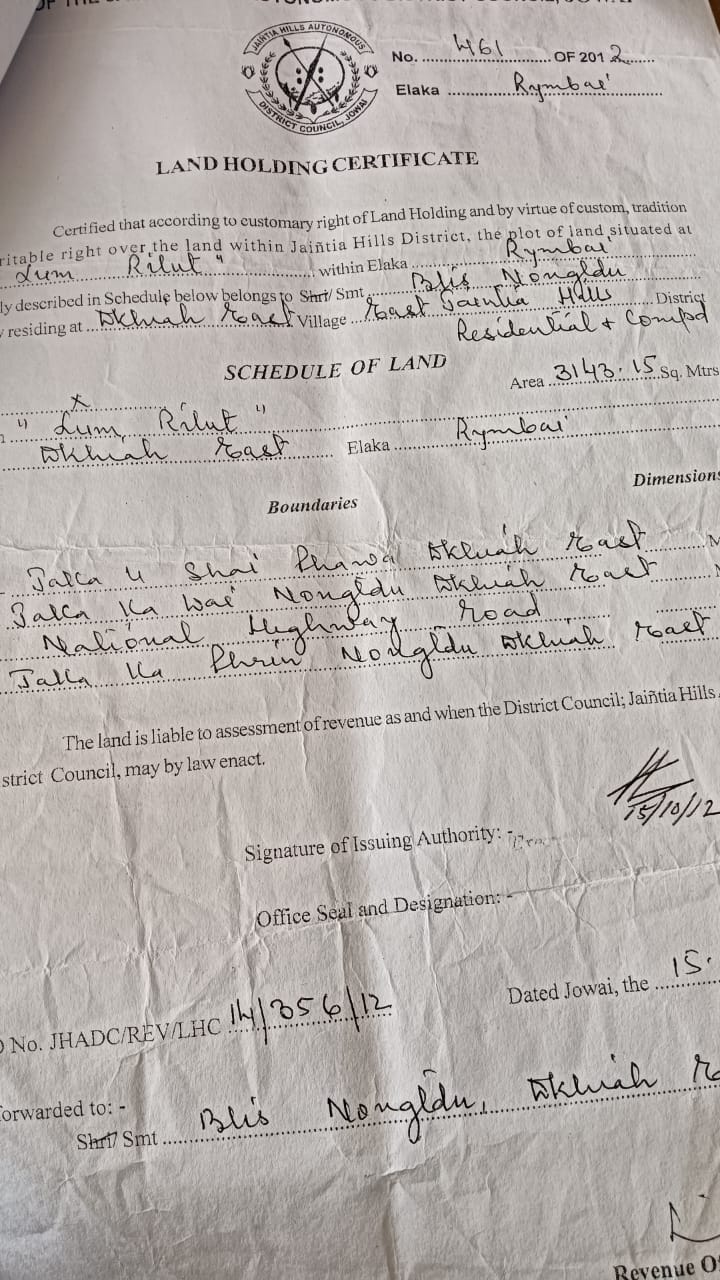 JAIÑTIA HILLS AUTONOMOUS
DISTRICT COUNCIL, JOWAI
No. 461 OF 2012
Elaka Rymbai
LAND HOLDING CERTIFICATE
Certified that according to customary right of Land Holding and by virtue of custom, tradition
ritable right over the land within Jaiñtia Hills District, the plot of land situated at
Lum Rilut" within Elaka Rymbai
ly described in Schedule below belongs to Shri/ Smt Blis Nongldu
residing at Dkhiah East Village East Jaintia Hills District
Residential + Compd
SCHEDULE OF LAND
Area 3143.15 Sq. Mtrs
x
" Lum Rilut "
Dkhiah East Elaka Rymbai
Boundaries Dimensions
Jaka u Shai Phawa Dkhiah East
Jaka Ka Wai Nongldu Dkhiah East
National Highway Road
Jaka Ka Phrin Nongldu Dkhiah East
The land is liable to assessment of revenue as and when the District Council; Jaiñtia Hills
strict Council, may by law enact.
15/10/12
Signature of Issuing Authority: -
Office Seal and Designation: -
Dated Jowai, the 15.
No. JHADC/REV/LHC 14/356/12
orwarded to: -
Shri/ Smt Blis Nongldu, Dkhiah
Revenue O